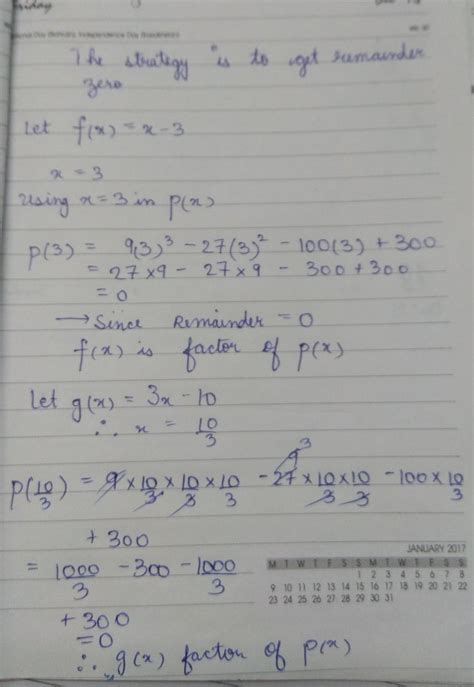 Friday
The strategy is to get remainder
zero
Let f(x) = x-3
x = 3
Using x=3 in p(x)
p(3) = 9(3)³ - 27(3)² - 100(3) + 300
= 27×9 - 27×9 - 300+300
= 0
→ Since Remainder = 0
f(x) is factor of p(x)
Let g(x) = 3x - 10
∴ x = 10/3
p(10/3) = 9×10/3×10/3×10/3 - 27×10/3×10/3 - 100×10/3
3
+ 300
= 1000/3 - 300 - 1000/3
+ 300
=0
∴ g(x) factor of p(x)
JANUARY 2017
M T W T F S S M T W T F S S
1 2 3 4 5 6 7 8
9 10 11 12 13 14 15 16 17 18 19 20 21 22
23 24 25 26 27 28 29 30 31